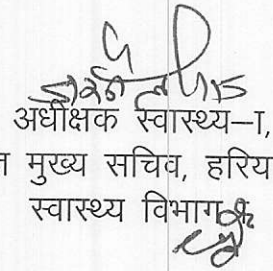 अधीक्षक स्वास्थ्य–I,
मुख्य सचिव, हरिय
स्वास्थ्य विभाग